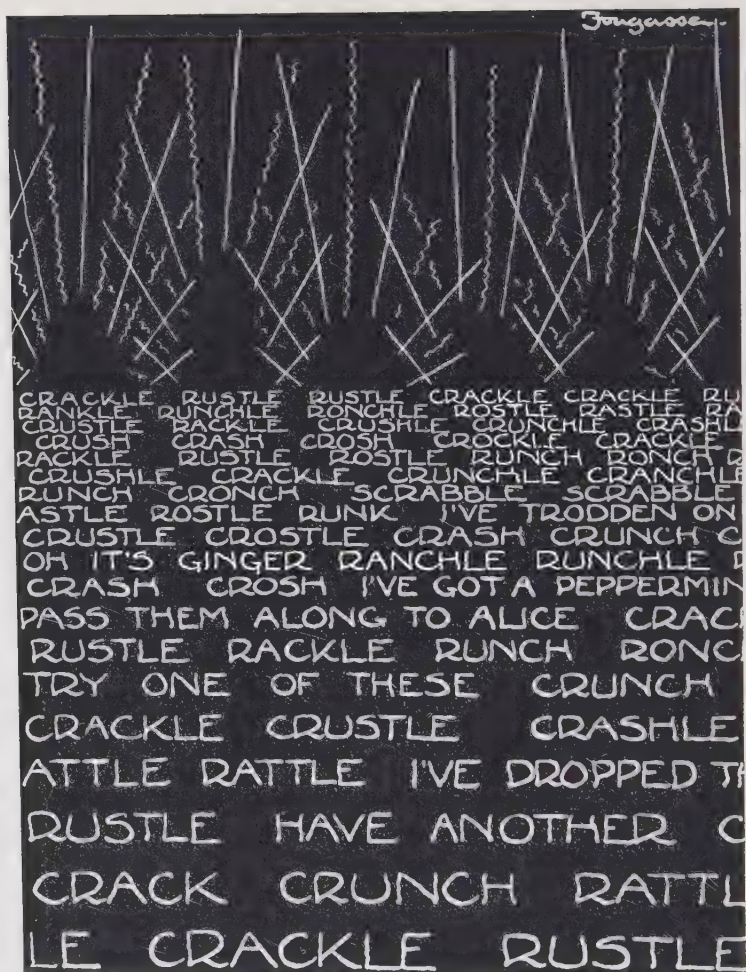 Fougasse
CRACKLE RUSTLE RUSTLE CRACKLE CRACKLE RU
RANKLE RUNCHLE RONCHLE ROSTLE RASTLE RA
CRUSTLE RACKLE CRUSHLE CRUNCHLE CRASHL
CRUSH CRASH CROSH CROCKLE CRACKLE
RACKLE RUSTLE ROSTLE RUNCH RONCH R
CRUSHLE CRACKLE CRUNCHLE CRANCHLE
RUNCH CRONCH SCRABBLE SCRABBLE
ASTLE ROSTLE RUNK I'VE TRODDEN ON
CRUSTLE CROSTLE CRASH CRUNCH C
OH IT'S GINGER RANCHLE RUNCHLE
CRASH CROSH I'VE GOT A PEPPERMIN
PASS THEM ALONG TO ALICE CRAC
RUSTLE RACKLE RUNCH RONC
TRY ONE OF THESE CRUNCH
CRACKLE CRUSTLE CRASHLE
ATTLE RATTLE I'VE DROPPED TH
RUSTLE HAVE ANOTHER C
CRACK CRUNCH RATTL
LE CRACKLE RUSTLE